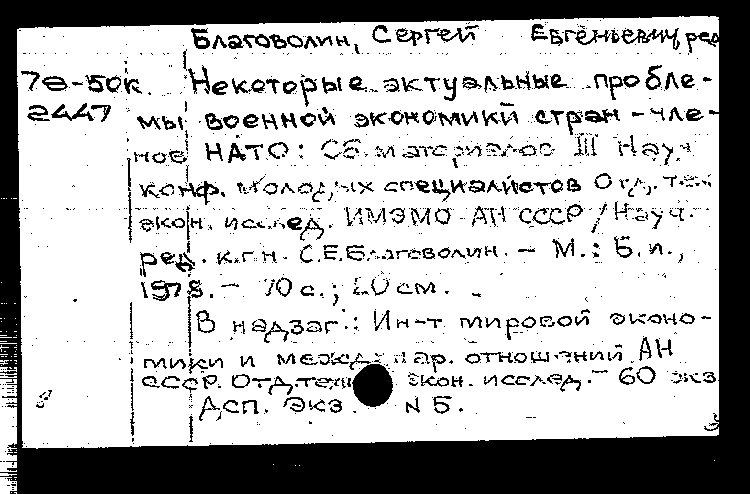 Благоволин, Сергей Евгеньевич, ред
78-50к Некоторые актуальные пробле-
2447 мы военной экономики стран-чле-
нов НАТО: Сб. материалов III Науч
конф. молодых специалистов Отд. тех
экон. исслед. ИМЭМО АН СССР / Науч.
ред. к.г.н. С.Е.Благоволин. - М.: Б.и.,
1978. - 70 с.; 20 см.
В надзаг.: Ин-т мировой эконо-
мики и междунар. отношений АН
СССР. Отд. техн экон. исслед. - 60 экз
Дсп. Экз. N 5.